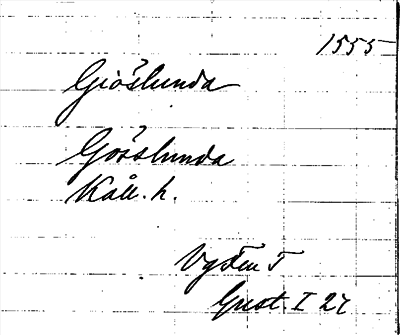 1555
Giöslunda
Gösslunda
Kåll. h.
Vg Fen T
Gust. I 27